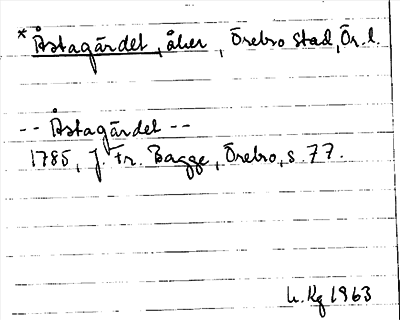 * Åstagärdet, åker, Örebro stad, Ör. l.
-- Åstagärdet --
1785, J. Fr. Bagge, Örebro, s. 77.
h. Kg 1963